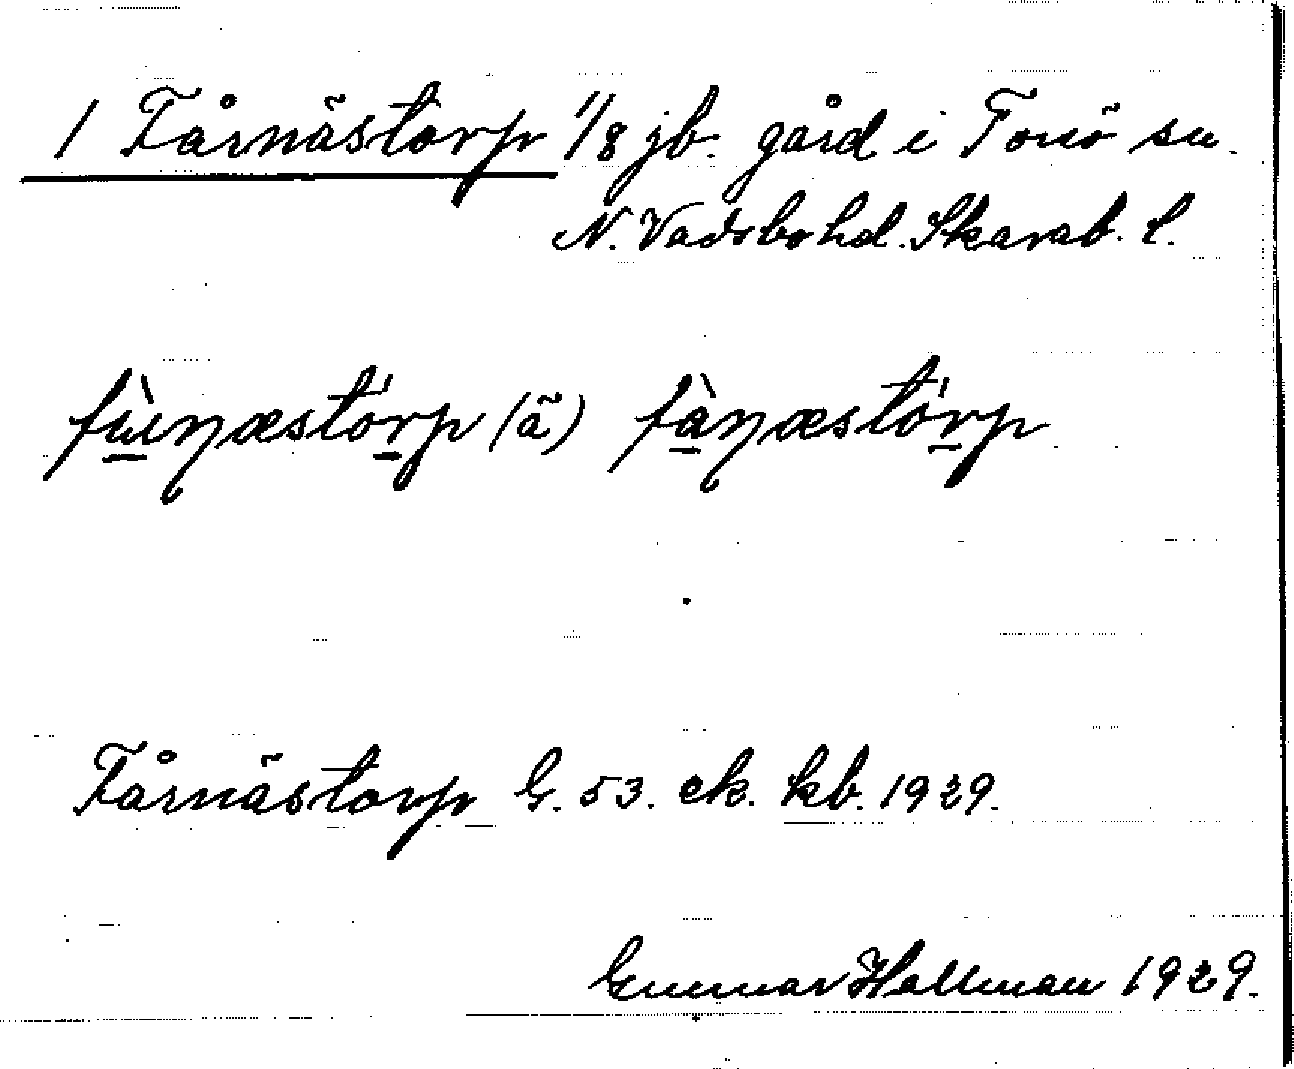 1 Fårnästorp 1/8 jb. gård i Torsö sn.
N. Vadsbo hd. Skarab. l.
(ã)
Fårnästorp G. 53. ek. kb. 1929.
Gunnar Hallman 1929.